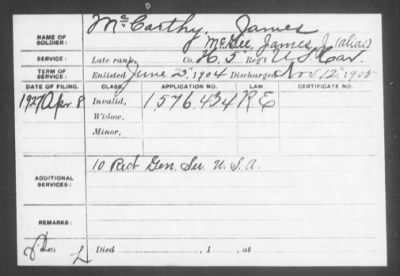 NAME OF SOLDIER: McCarthy, James
McGee, James J (alias)
SERVICE: Late rank, Co. K, 5" Reg't U.S. Cav.
TERM OF SERVICE: Enlisted June 2, 1904 Discharged Nov. 12, 1905
DATE OF FILING. CLASS. APPLICATION NO. LAW. CERTIFICATE NO.
1927 Apr 8 Invalid, 1,576,454 R E
Widow,
Minor,
ADDITIONAL SERVICES: 10 Rect Gen. Ser. U.S.A.
REMARKS:
Died , 1 , at